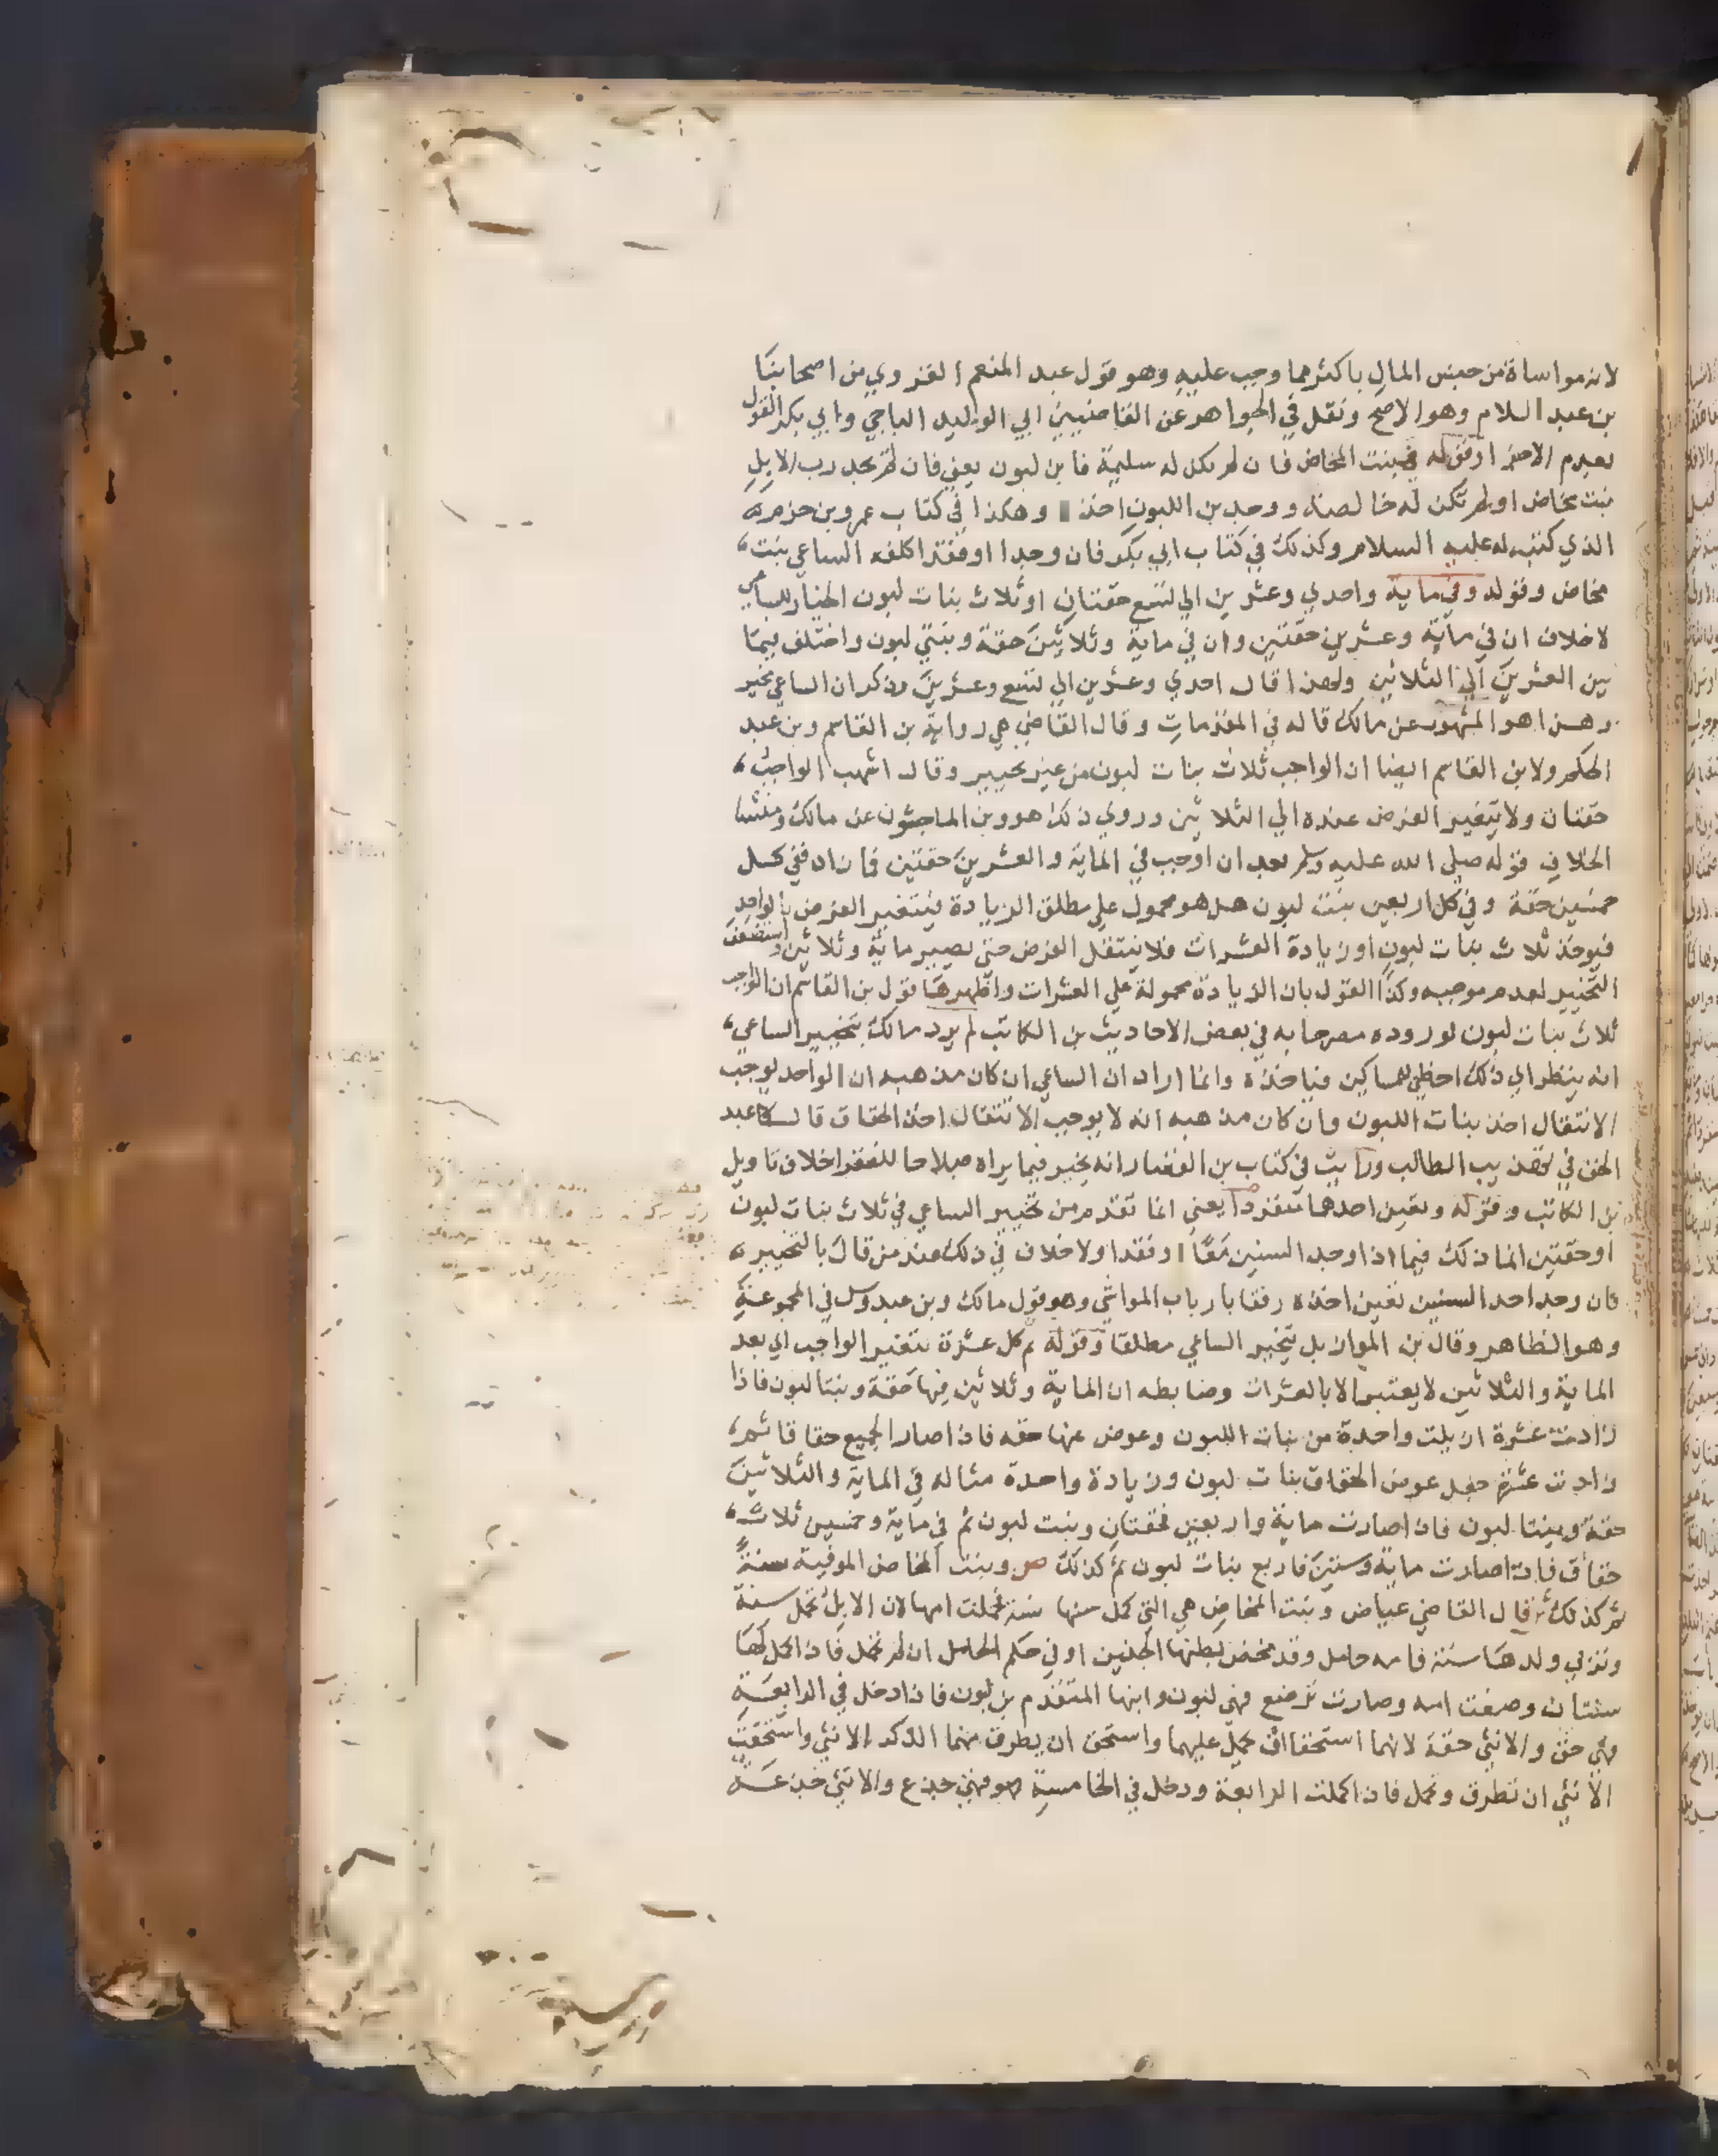 لانه مواساة من جنس المال باكثر مما وجب عليه وهو قول عبد المنعم القروي من اصحابنا
بن عبد السلام وهو الاصح ونقل في الجواهر عن القاضيين ابي الوليد الباجي وابي بكر القول
بعدم الاجزا وقوله في بنت المخاض فان لم يكن له سليمة فابن لبون يعني فان لم يجد رب الابل
بنت مخاض او لم تكن له خالصة ووجد بن اللبون اخذ وهكذا في كتاب عمرو بن حزم
الذي كتبه له عليه السلام وكذلك في كتاب ابي بكر فان وجدا او فقدا كلفه الساعي بنت
مخاض وقوله وفي ماية واحدي وعشرين الي تسع حقتان او ثلاث بنات لبون الخيار للساعي
لا خلاف ان في ماية وعشرين حقتين وان في ماية وثلاثين حقة وبنتي لبون واختلف فيما
بين العشرين الي الثلاثين ولهذا قال احدي وعشرين الي تسع وعشرين وذكر ان الساعي يخير
وهذا هو المشهور عن مالك قاله في المقدمات وقال القاضي هي رواية بن القاسم وبن عبد
الحكم ولابن القاسم ايضا ان الواجب ثلاث بنات لبون من غير تخيير وقال اشهب الواجب
حقتان ولا يتغير الفرض عنده الي الثلاثين وروي ذلك هو وبن الماجشون عن مالك ومنشا
الخلاف قوله صلي الله عليه وسلم بعد ان اوجب في الماية والعشرين حقتين فما زاد ففي كل
خمسين حقة وفي كل اربعين بنت لبون هل هو محمول علي مطلق الزيادة فيتغير الفرض بالواحد
فيوخذ ثلاث بنات لبون او زيادة العشرات فلا ينتقل الفرض حتي يصير ماية وثلاثين واستضعف
التخيير لعدم موجبه وكذا القول بان الزيادة محمولة علي العشرات واظهرها قول بن القاسم ان الواجب
ثلاث بنات لبون لوروده مصرحا به في بعض الاحاديث بن الكاتب لم يرد مالك بتخيير الساعي
انه ينظر اي ذلك احظي للمساكين فياخذه وانما اراد ان الساعي ان كان مذهبه ان الواحد يوجب
الانتقال اخذ بنات اللبون وان كان مذهبه انه لا يوجب الانتقال اخذ الحقاق قال عبد
الحق في تهذيب الطالب ورايت في كتاب بن القصار انه يخير فيما يراه صلاحا للفقرا خلاف تاويل
بن الكاتب وقوله وتعين احدهما منفردا يعني انما تقدم من تخيير الساعي في ثلاث بنات لبون
او حقتين انما ذلك فيما اذا وجد السنين معا او فقدا ولا خلاف في ذلك عند من قال بالتخيير
فان وجد احد السنين تعين اخذه رفقا بارباب المواشي وهو قول مالك وبن عبدوس في المجموعة
وهو الظاهر وقال بن المواز بل يتخير الساعي مطلقا وقوله ثم كل عشرة يتغير الواجب اي بعد
الماية والثلاثين لا يعتبر الا بالعشرات وضابطه ان الماية وثلاثين فيها حقة وبنتا لبون فاذا
زادت عشرة ازيلت واحدة من بنات اللبون وعوض عنها حقه فاذا صار الجميع حقاقا ثم
زادت عشرة جعل عوض الحقاق بنات لبون وزيادة واحدة مثاله في الماية والثلاثين
حقة وبنتا لبون فاذا صارت ماية واربعين فحقتان وبنت لبون ثم في ماية وخمسين ثلاث
حقاق فاذا صارت ماية وستين فاربع بنات لبون ثم كذلك ص وبنت المخاض الموفية سنة
ثم كذلك ش قال القاضي عياض وبنت المخاض هي التي كمل سنها سنة فحملت امها لان الابل تحمل سنة
وتربي ولدها سنة فامه حامل وقد مخض بطنها الجنين او في حكم الحامل ان لم تحمل فاذا كمل لها
سنتان وضعت امه وصارت ترضع فهي لبون وابنها المتقدم بن لبون فاذا دخل في الرابعة
فهي حق والانثي حقة لانهما استحقا ان يحمل عليهما واستحق ان يطرق منهما الذكر الانثي واستحقت
الانثي ان تطرق وتحمل فاذا كملت الرابعة ودخل في الخامسة فهو جذع والانثي جذعة